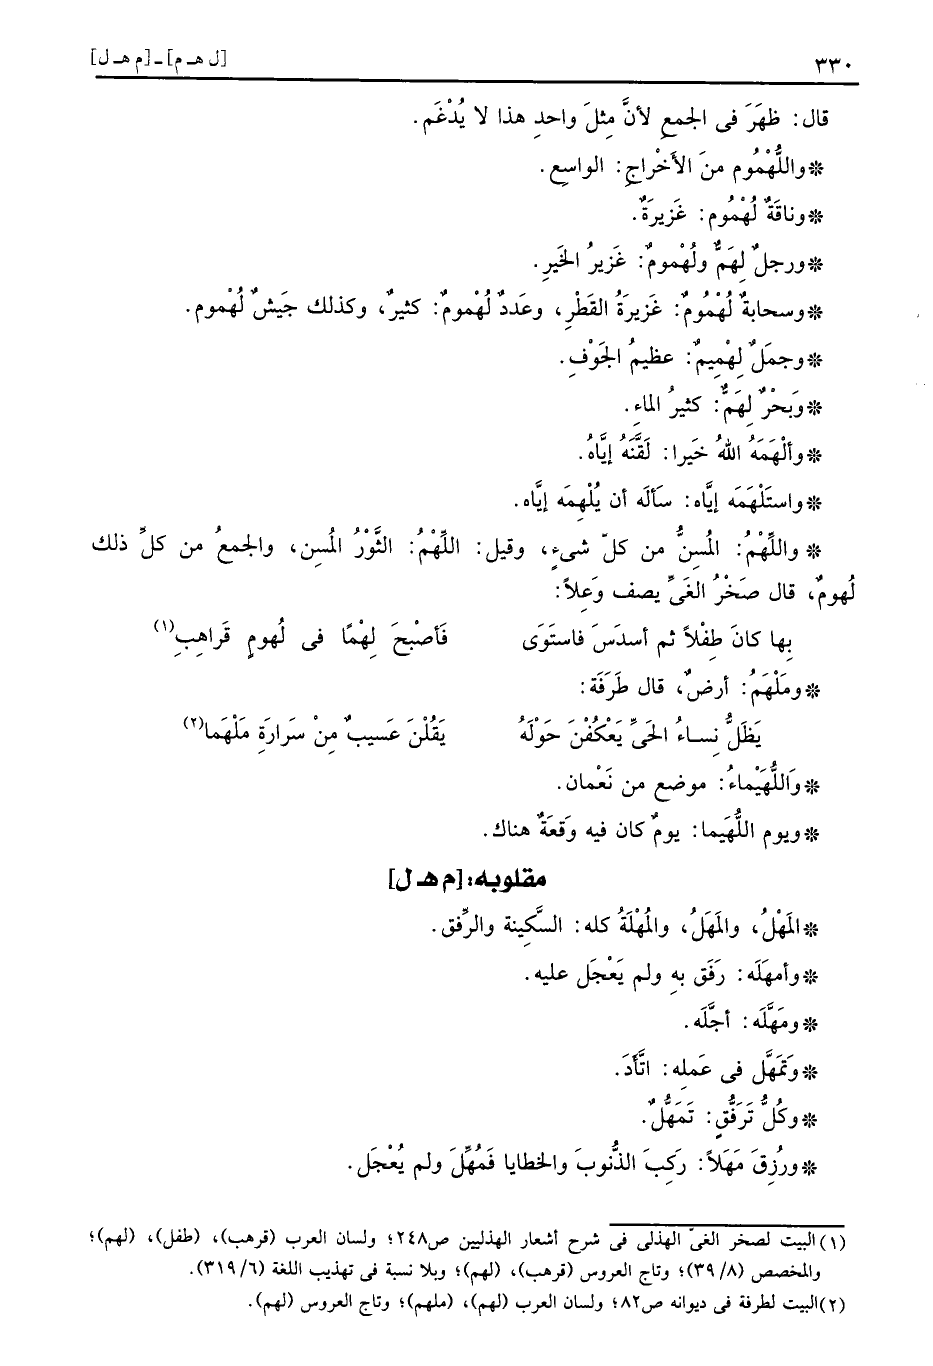 ٣٣٠
[ل هـ م] ـ [م هـ ل]
قال: ظهَرَ فى الجمعِ لأنَّ مِثلَ واحدِ هذا لا يُدْغَم.
*واللُّهْمُوم منَ الأَحْراجِ: الواسِع.
*وناقَةٌ لُهْمُوم: غَزِيرَةٌ.
*ورجلٌ لِهَمٌّ ولُهْمومٌ: غَزيرُ الخَيرِ.
*وسحابةٌ لُهْمُومٌ: غَزيرَةُ القَطْرِ، وعَددٌ لُهْمومٌ: كثيرٌ، وكذلك جَيشٌ لُهْموم.
*وجملٌ لِهْمِيمٌ: عظيمُ الجَوْفِ.
*وَبَحْرٌ لِهَمٌّ: كثيرُ الماءِ.
*وألْهَمَهُ اللهُ خَيرا: لَقَّنَهُ إيَّاهُ.
*واستَلْهَمَه إيَّاه: سَألَه أن يُلْهِمَه إيَّاه.
* واللِّهْمُ: المُسِنُّ من كلّ شىءٍ، وقيل: اللِّهْمُ: الثَّوْرُ المُسِن، والجمعُ من كلِّ ذلك
لُهومٌ، قال صَخْرُ الغَىِّ يصف وَعِلاً:
بِها كانَ طِفْلاً ثم أسدَسَ فاستَوَى فَأصْبَحَ لِهْمًا فى لُهومٍ قَراهِبِ(١)
*ومَلْهَمُ: أرضٌ، قال طَرَفَة:
يَظَلُّ نِساءُ الحَىِّ يَعْكُفْنَ حَوْلَهُ يَقُلْنَ عَسيبٌ مِنْ سَرارَةِ مَلْهَما(٢)
*وَاللُّهَيْماءُ: موضع من نَعْمان.
*ويوم اللُّهَيما: يومٌ كان فيه وَقعَةٌ هناك.
مقلوبه: [م هـ ل]
*المَهْلُ، والمَهَلُ، والمُهْلَةُ كله: السَّكِينة والرِّفق.
*وأمهَلَه: رَفَق بِه ولم يَعْجَل عليه.
*ومَهَّلَه: أجَّلَه.
*وَتَمَهَّل فى عَمِله: اتَّأَدَ.
*وكُلُّ تَرَفُّقٍ: تَمَهُّلٌ.
*ورُزِقَ مَهَلاً: رَكِبَ الذُّنوبَ والخطايا فَمُهِّلَ ولم يُعْجَل.
(١) البيت لصخر الغىّ الهذلى فى شرح أشعار الهذليين ص٢٤٨؛ ولسان العرب (قرهب)، (طفل)، (لهم)؛
والمخصص (٨/ ٣٩)؛ وتاج العروس (قرهب)، (لهم)؛ وبلا نسبة فى تهذيب اللغة (٦/ ٣١٩).
(٢) البيت لطرفة فى ديوانه ص٨٢؛ ولسان العرب (لهم)، (ملهم)؛ وتاج العروس (لهم).